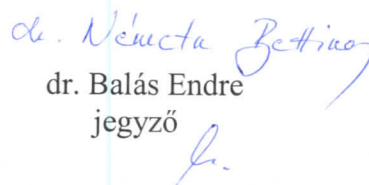 dr. Németh Bettina
dr. Balás Endre
jegyző